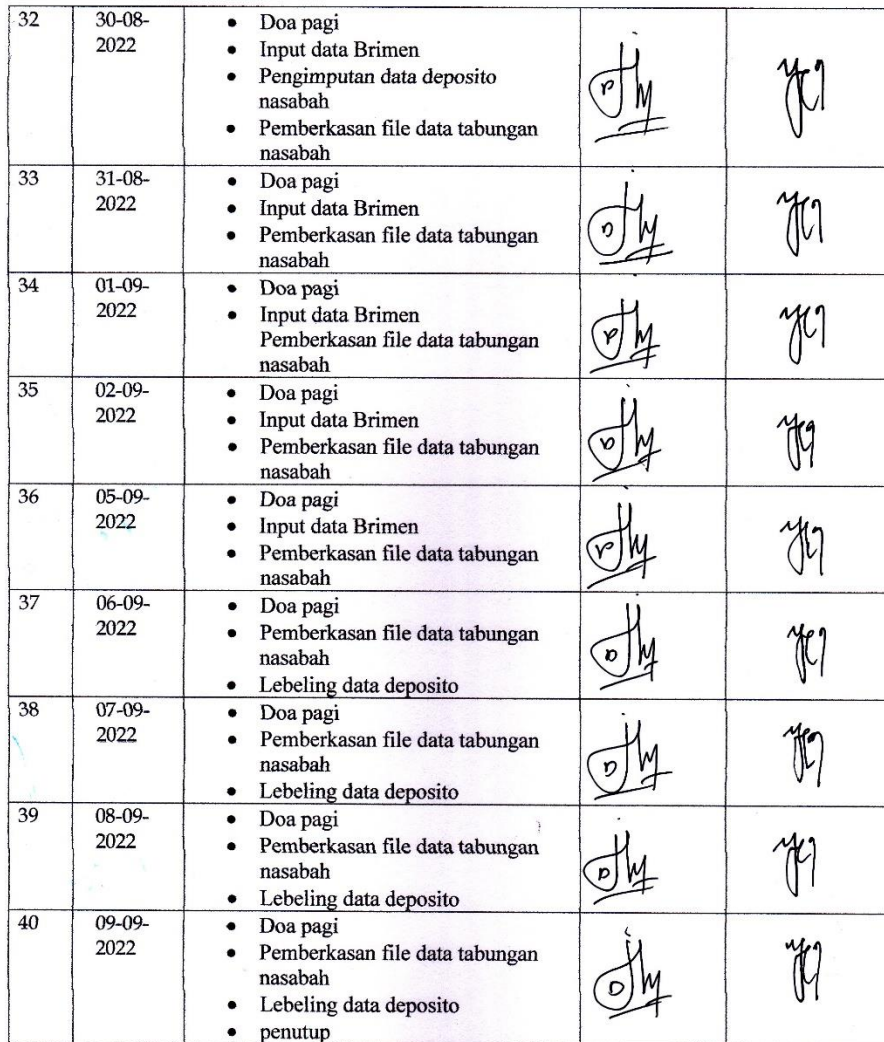 32 30-08- • Doa pagi
2022 • Input data Brimen
• Pengimputan data deposito
nasabah
• Pemberkasan file data tabungan
nasabah
33 31-08- • Doa pagi
2022 • Input data Brimen
• Pemberkasan file data tabungan
nasabah
34 01-09- • Doa pagi
2022 • Input data Brimen
Pemberkasan file data tabungan
nasabah
35 02-09- • Doa pagi
2022 • Input data Brimen
• Pemberkasan file data tabungan
nasabah
36 05-09- • Doa pagi
2022 • Input data Brimen
• Pemberkasan file data tabungan
nasabah
37 06-09- • Doa pagi
2022 • Pemberkasan file data tabungan
nasabah
• Lebeling data deposito
38 07-09- • Doa pagi
2022 • Pemberkasan file data tabungan
nasabah
• Lebeling data deposito
39 08-09- • Doa pagi
2022 • Pemberkasan file data tabungan
nasabah
• Lebeling data deposito
40 09-09- • Doa pagi
2022 • Pemberkasan file data tabungan
nasabah
• Lebeling data deposito
• penutup